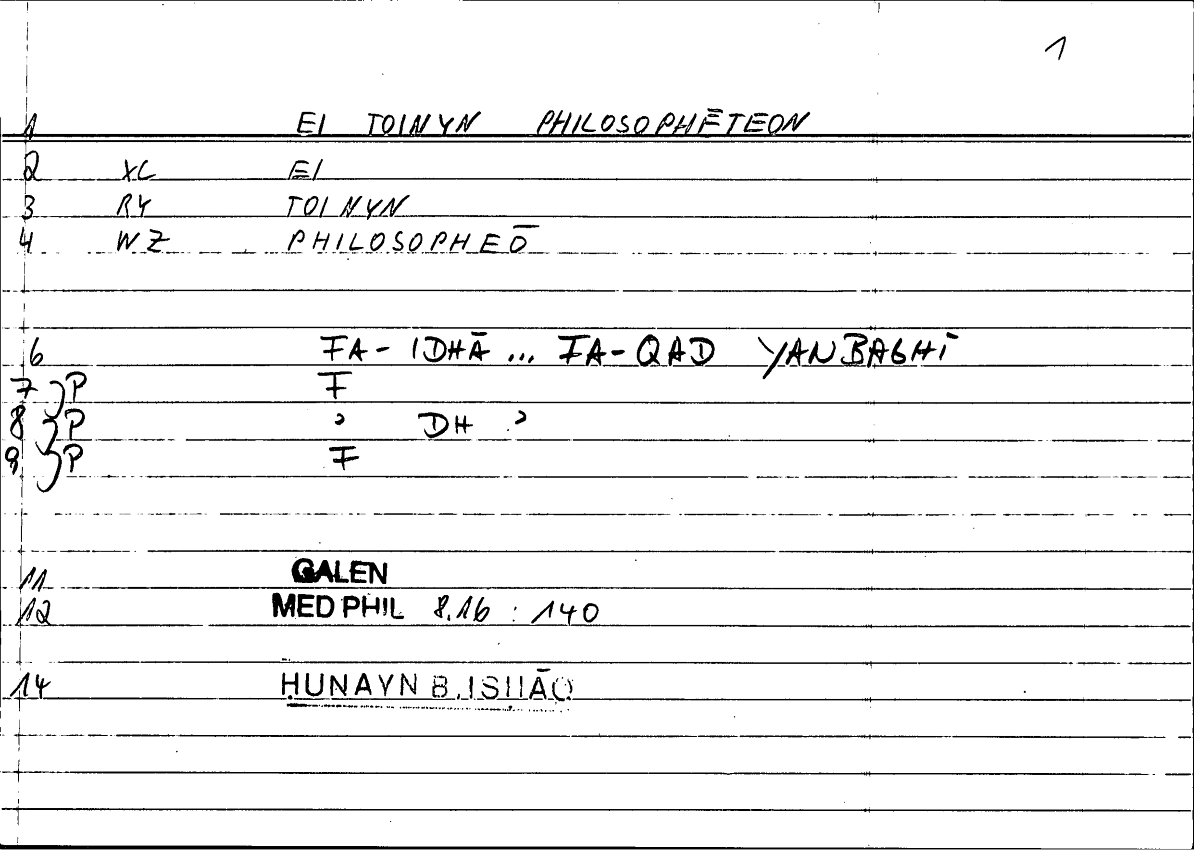 1
1 EI TOINYN PHILOSOPHĒTEON
2 XC EI
3 RY TOINYN
4 WZ PHILOSOPHEŌ
6 FA-IDHĀ ... FA-QAD YANBAGHĪ
7 P F
8 P ʾ DH ʾ
9 P F
11 GALEN
12 MED PHIL 8.16 : 140
14 ḤUNAYN B. ISḤĀQ